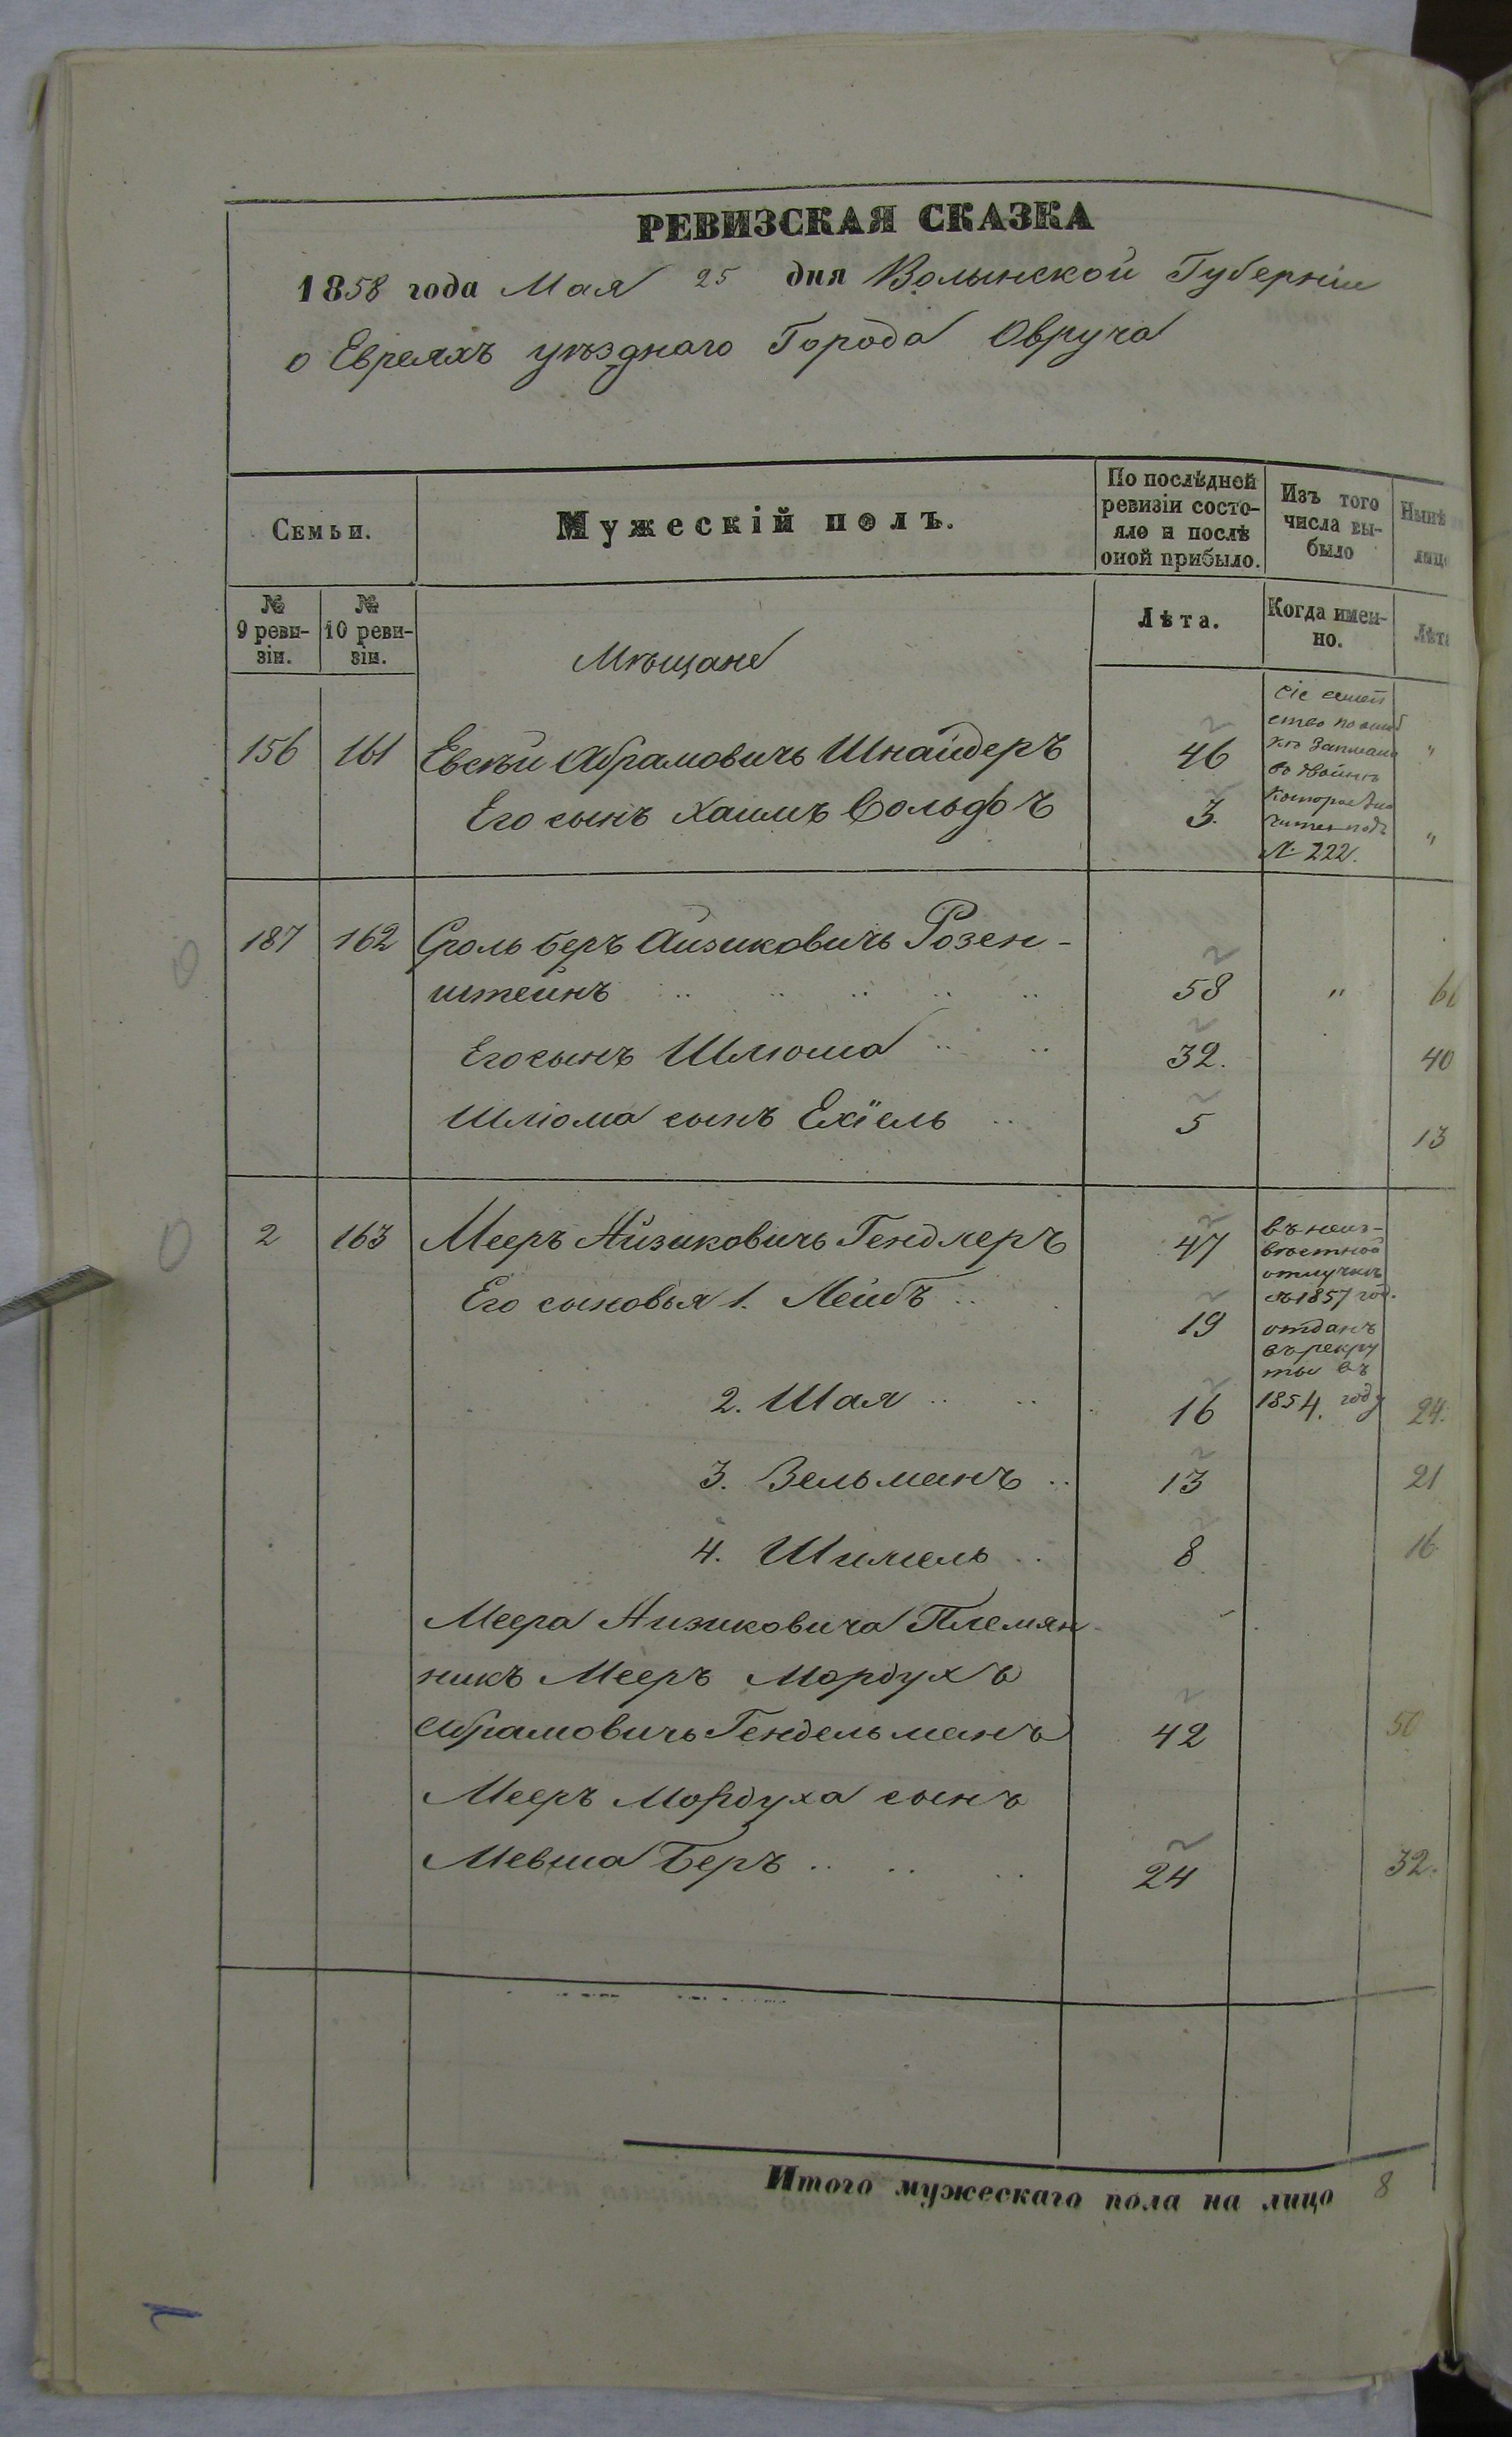 РЕВИЗСКАЯ СКАЗКА
1858 года Мая 25 дня Волынской Губерніи
о Евреяхъ уѣзднаго Города Овруча
Семьи.
Мужескій полъ.
По послѣдней
ревизіи состо-
яло и послѣ
оной прибыло.
Изъ того
числа вы-
было
Нынѣ
лицо
№
9 реви-
зіи.
№
10 реви-
зіи.
Лѣта.
Когда имен-
но.
Лѣта
Мѣщане
156 161 Евсѣй Абрамовичь Шнайдеръ 46 "
Его сынъ Хаимъ Вольфъ 3. "
сіе семей
ство по ошиб
кѣ записано
во двойнѣ
которое
подъ
№ 222.
187 162 Сроль Беръ Айзиковичь Розен-
штейнъ 58 " 66
Его сынъ Шлюма 32. 40
Шлюма сынъ Ехіель 5 13
2 163 Мееръ Айзиковичь Гендлеръ 47
въ неиз-
вѣстной
отлучкѣ
съ 1857 год.
Его сыновья 1. Лейбъ 19
отданъ
въ рекру
ты въ
1854. году
2. Шая 16 24.
3. Зельманъ 13 21
4. Шимель 8 16
Меера Айзиковича Племян
никъ Мееръ Мордухъ
Абрамовичь Гендельманъ 42 50
Мееръ Мордуха сынъ
Мевша Беръ 24 32.
Итого мужескаго пола на лицо 8